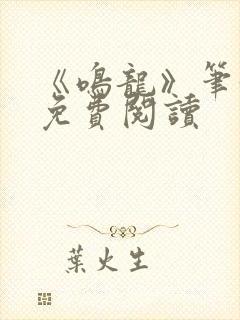 《鳴龍》筆
免費閱讀
葉火生